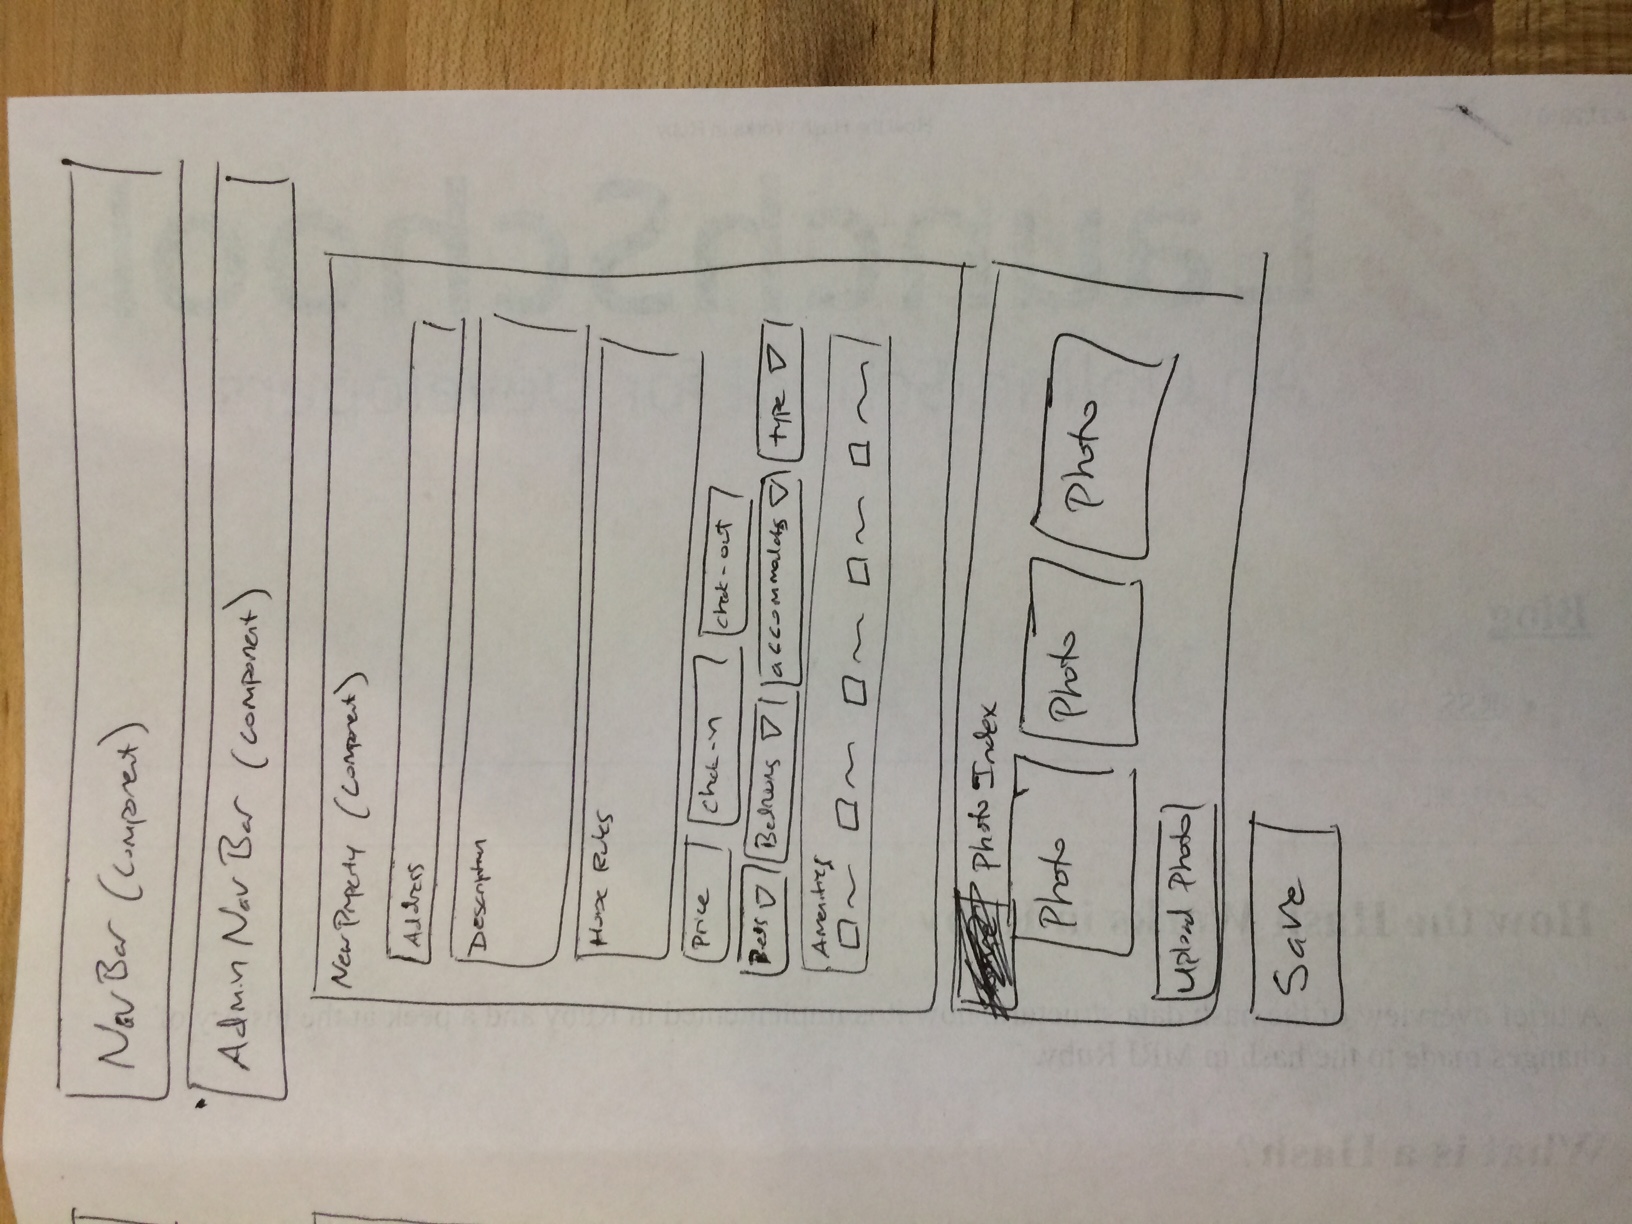 Nav Bar (component)
Admin Nav Bar (component)
New Property (component)
Address
Description
House Rules
Price Check-in Check-out
Beds Bedrooms accommodates type
Amenities
Photo Index
Photo Photo Photo
Upload Photo
Save